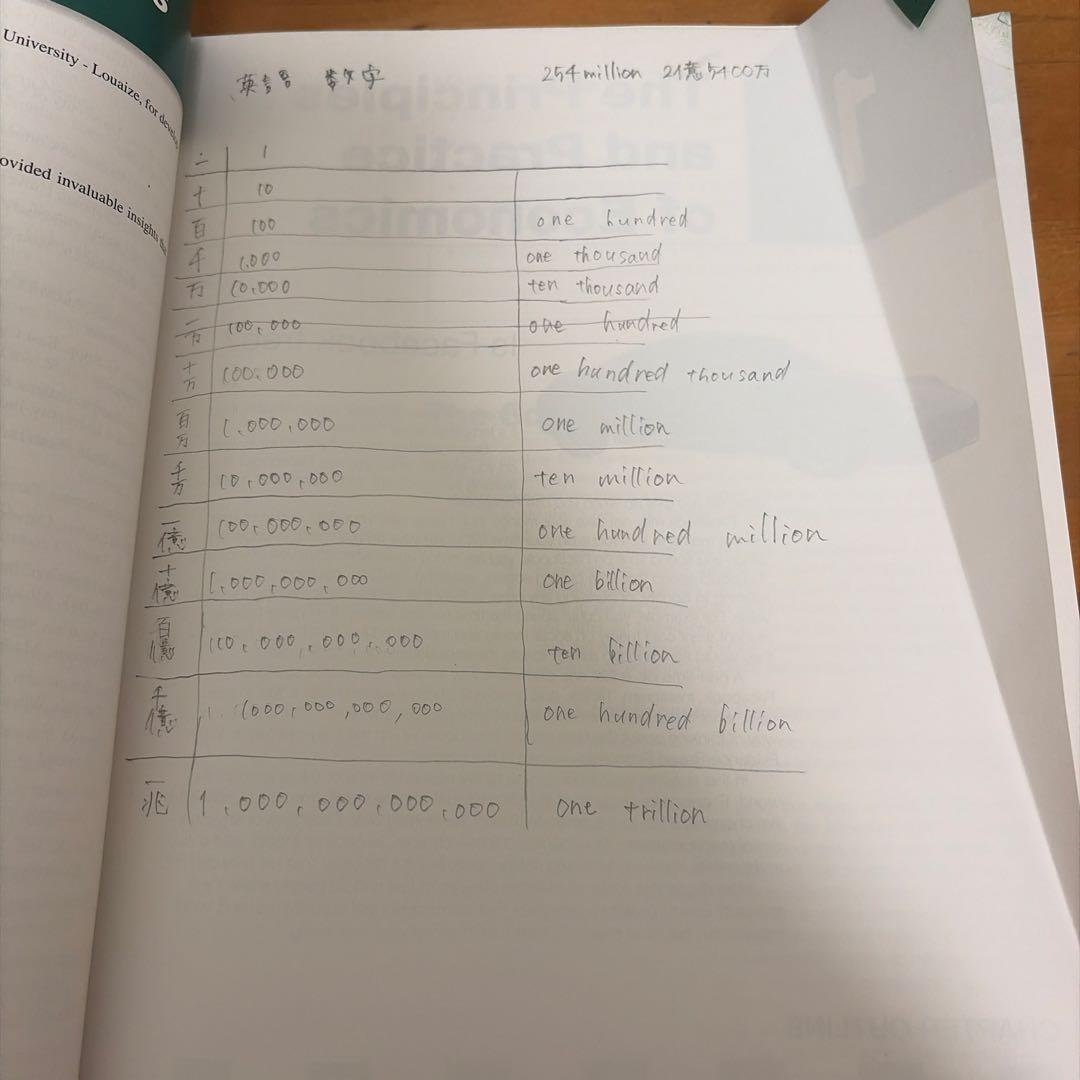 University - Louaize, for
ovided invaluable insights
英語 数字 254 million 2億5400万
一 1
十 10
百 100 one hundred
千 1,000 one thousand
万 10,000 ten thousand
一万 100,000 one hundred
十万 100,000 one hundred thousand
百万 1,000,000 one million
千万 10,000,000 ten million
一億 100,000,000 one hundred million
十億 1,000,000,000 one billion
百億 110,000,000,000 ten billion
千億 1000,000,000,000 one hundred billion
一兆 1,000,000,000,000 one trillion